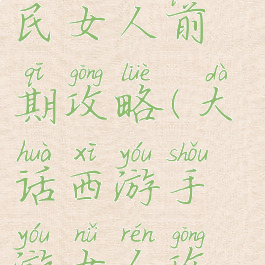 民女人前
qī gōng lüè dà
期攻略(大
huà xī yóu shǒu
话西游手
yóu nǚ rén gōng
游女人攻